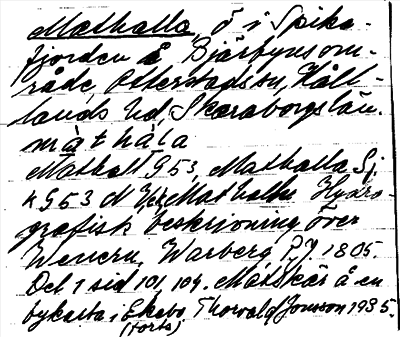 Mathalla ö i Spika-
fjorden å Djärbynsom-
råde, Otterstadsn, Kåll-
lands hd, Skaraborgs län.
màthàla
Mathall G53, Mathalla Sj
k G53 N Vst, Mathalla Hydro-
grafisk beskrivning över
Wenern, Warberg P.J. 1805.
Del 1 sid 101, 104. Matskär å en
bykarta i Ekebo, Thorvald Jonsson 1935.
(forts)